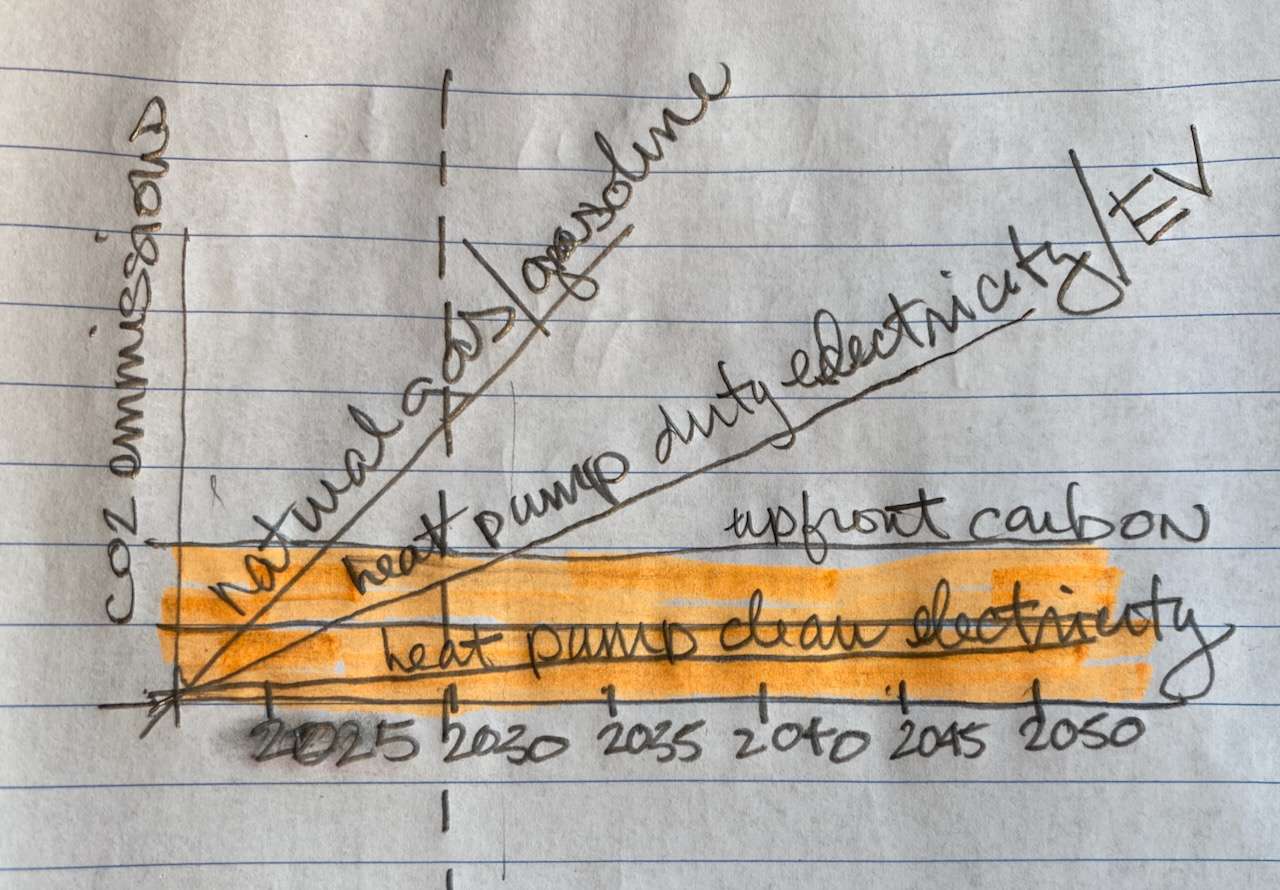 CO2 emmissions
natural gas/gasoline
heat pump dirty electricity/EV
upfront carbon
heat pump clean electricity
2025 2030 2035 2040 2045 2050